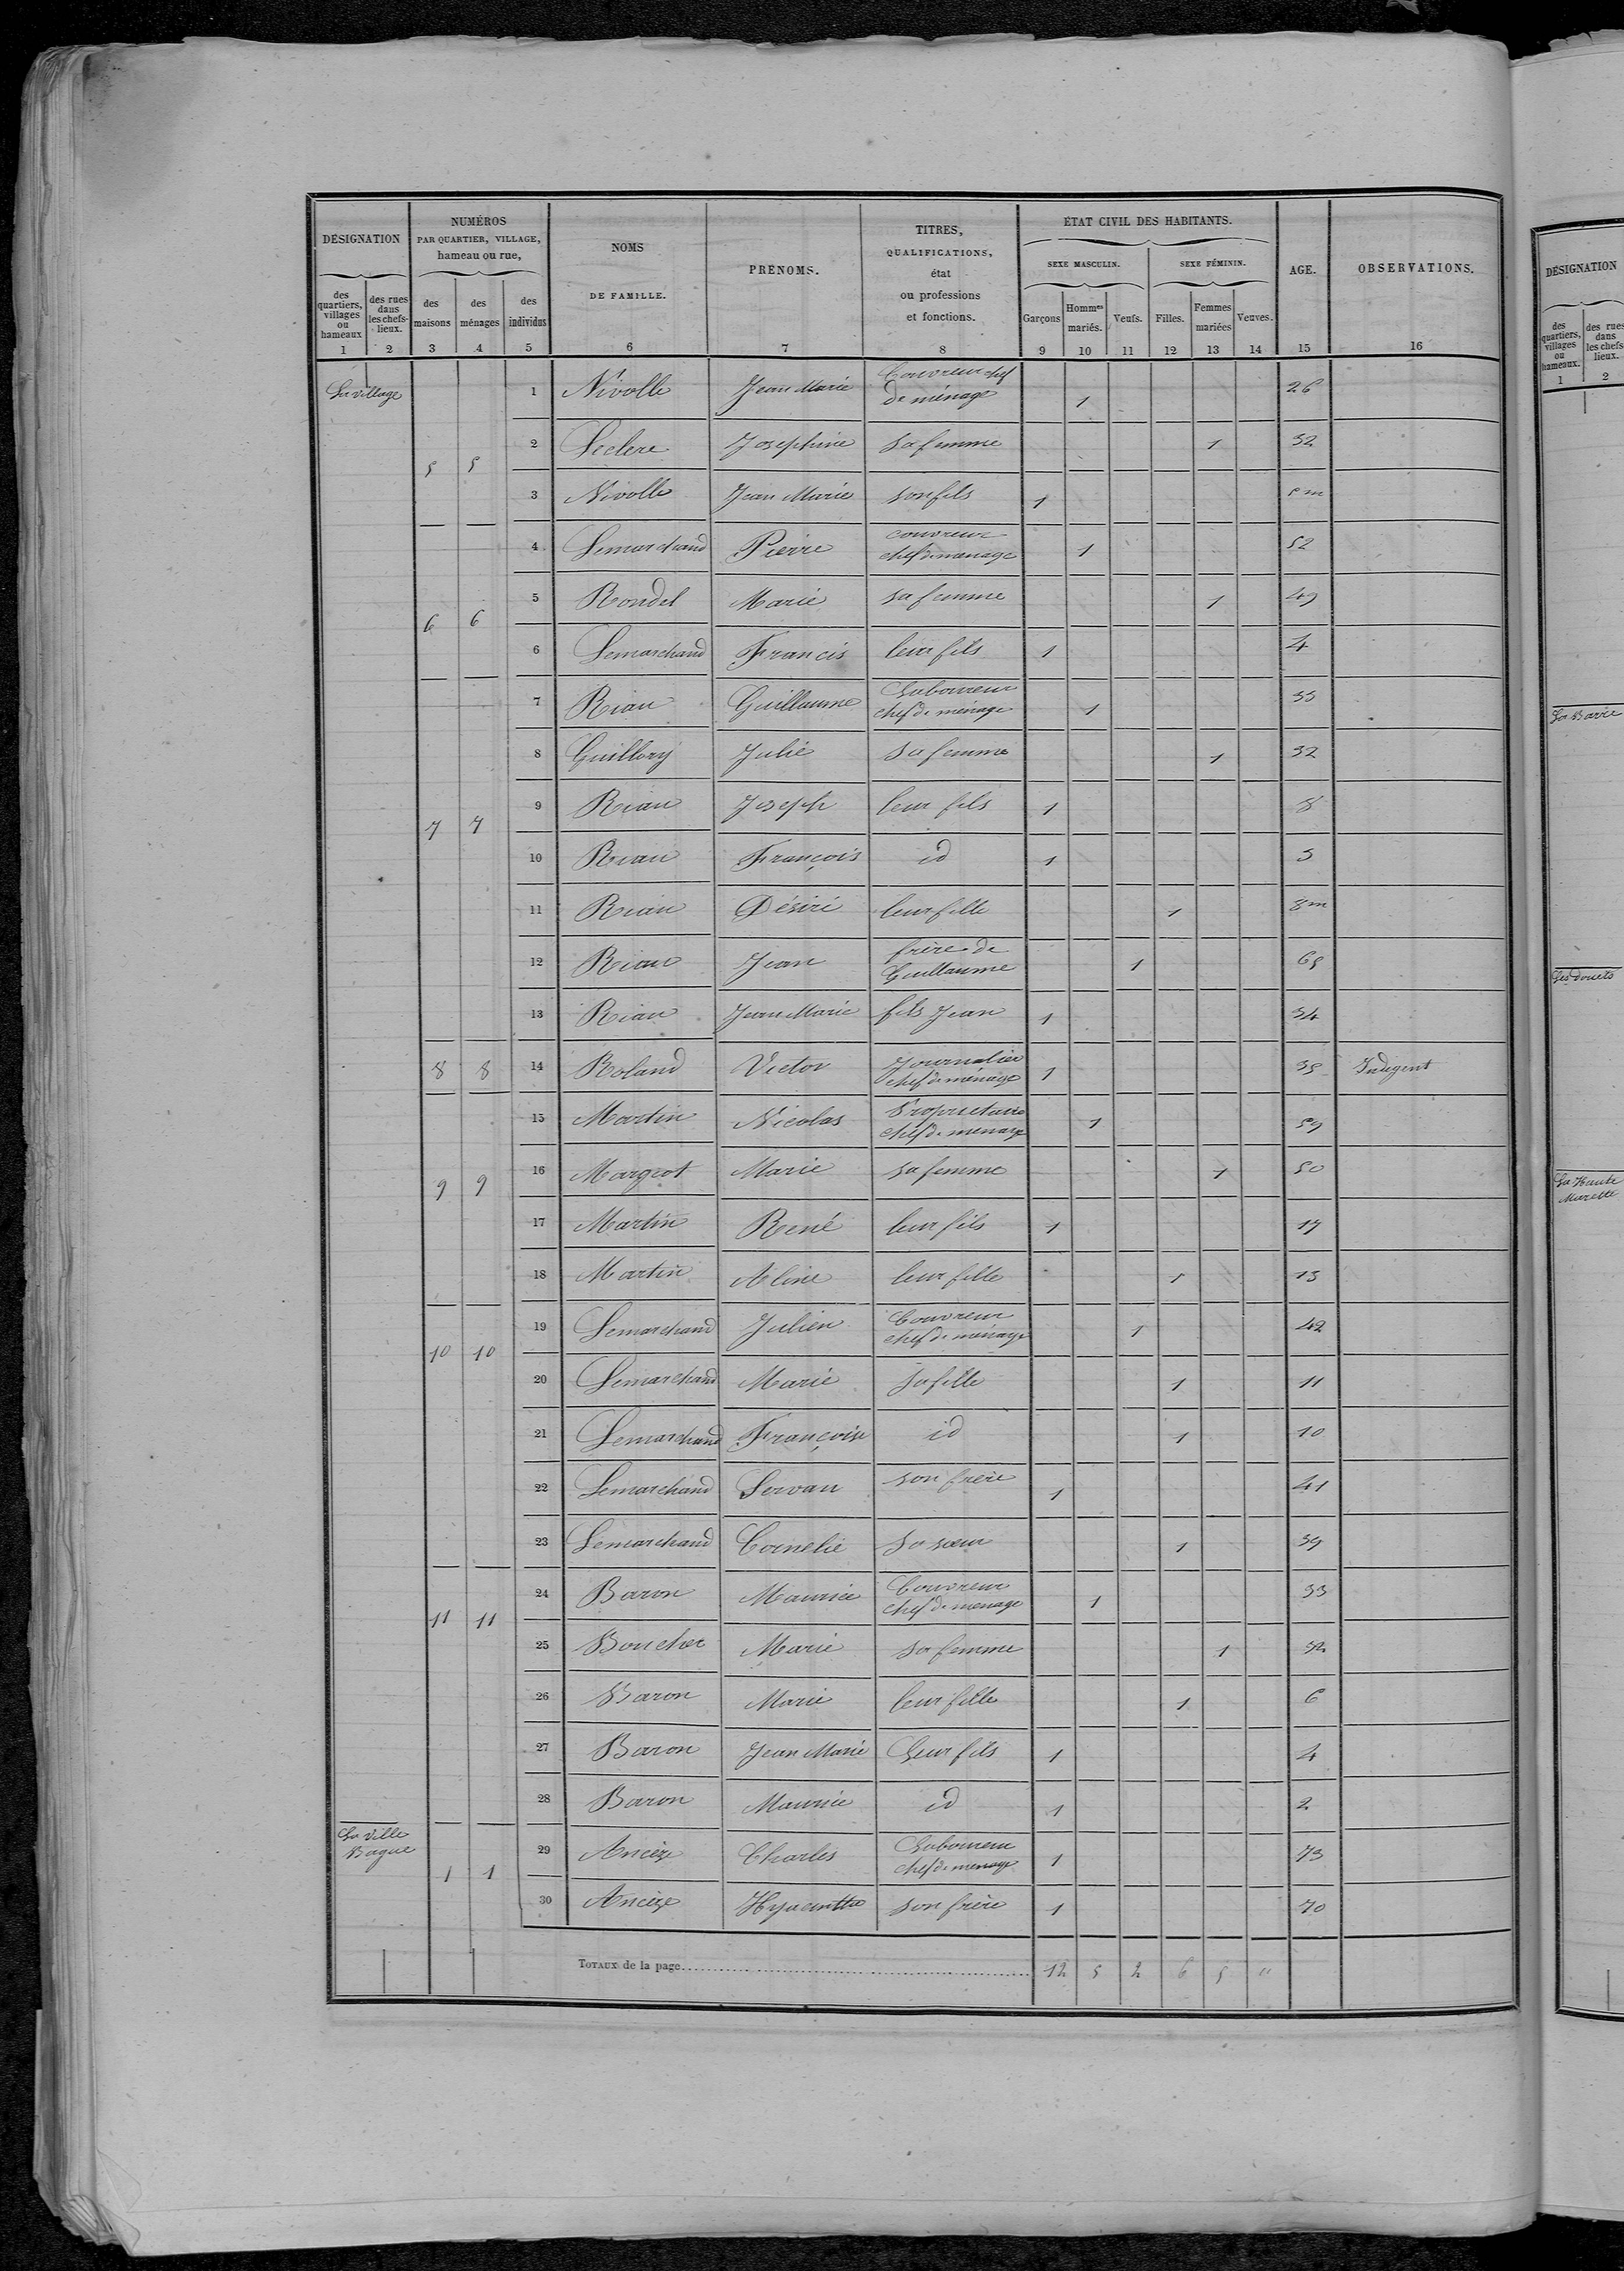 DÉSIGNATION
NUMÉROS
PAR QUARTIER, VILLAGE,
hameau ou rue,
NOMS
DE FAMILLE.
PRÉNOMS.
TITRES,
QUALIFICATIONS,
état
ou professions
et fonctions.
ÉTAT CIVIL DES HABITANTS.
SEXE MASCULIN.
SEXE FÉMININ.
AGE.
OBSERVATIONS.
des quartiers, villages ou hameaux
des rues dans les chefs-lieux.
des maisons
des ménages
des individus
Garçons
Hommes mariés.
Veufs.
Filles.
Femmes mariées
Veuves.
1 2 3 4 5 6 7 8 9 10 11 12 13 14 15 16
La village 1 Nivolle Jean Marie Couvreur chef de ménage 1 26
5 5 2 Leclerc Josephine sa femme 1 32
3 Nivolle Jean Marie son fils 1
4 Lemarchand Pierre couvreur chef de ménage 1 52
6 6 5 Rondel Marie sa femme 1 49
6 Lemarchand Francis leur fils 1 4
7 Riau Guillaume Laboureur chef de ménage 1
8 Guillory Julie sa femme 1 32
7 7 9 Riau Joseph leur fils 1 8
10 Riau François id 1
11 Riau Désiré leur fille 1
12 Riau Jean frère de Guillaume 1 65
13 Riau Jean Marie fils Jean 1 34
8 8 14 Roland Victor Journalier chef de ménage 1 35 Indigent
15 Martin Nicolas Propriétaire chef de ménage 1 59
9 9 16 Margeot Marie sa femme 1 50
17 Martin René leur fils 1 17
18 Martin Aline leur fille 1 13
10 10 19 Lemarchand Julien Couvreur chef de ménage 1 42
20 Lemarchand Marie sa fille 1 11
21 Lemarchand Françoise id 1 10
22 Lemarchand Servan son frère 1 41
23 Lemarchand Cornelie sa sœur 1 39
11 11 24 Baron Maurice Couvreur chef de menage 1 33
25 Boucher Marie sa femme 1 32
26 Baron Marie leur fille 1 6
27 Baron Jean Marie Leur fils 1 4
28 Baron Maurice id 1 2
La Ville Bague 1 1 29 Ancèze Charles Laboureur chef de menage 1 73
30 Ancèze Hyacinthe son frère 1 70
TOTAUX de la page 12 5 2 6 5 "
DÉSIGNATION
des quartiers, villages ou hameaux.
des rues dans les chefs-lieux.
1 2
La Barre
Les Douets
La Haute